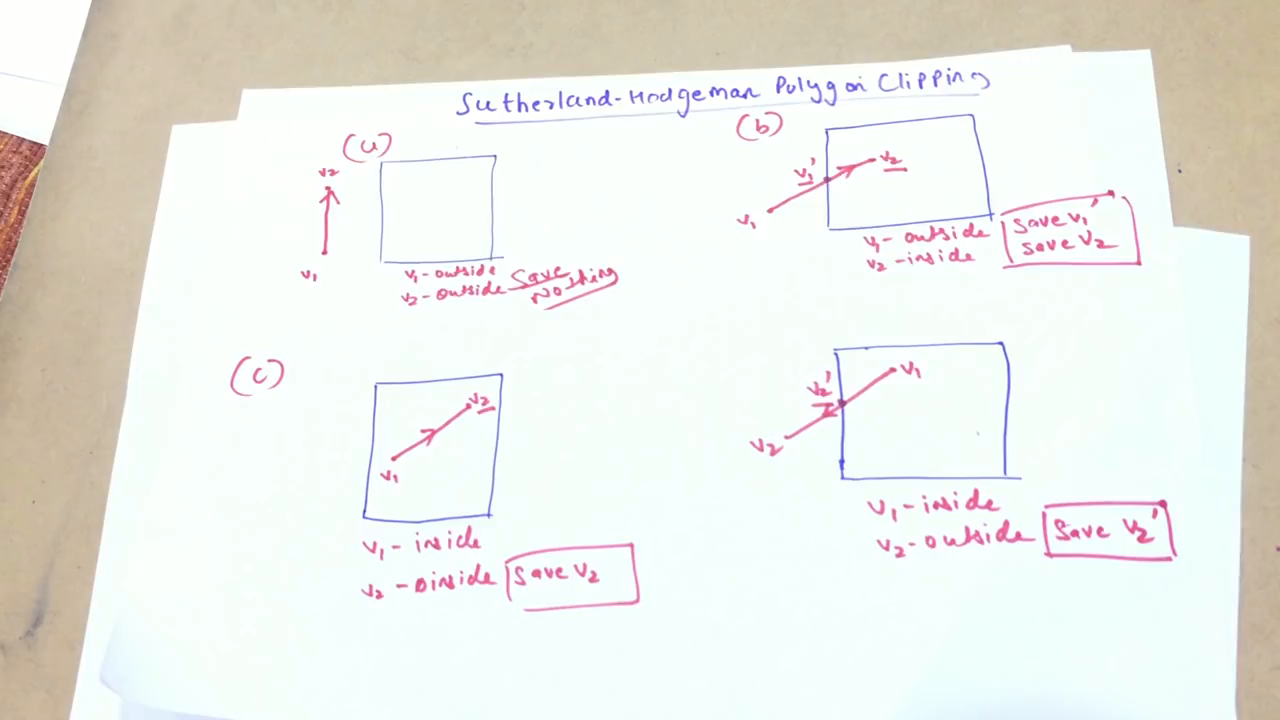 Sutherland-Hodgeman Polygon Clipping
(a)
v2
v1
v1- outside
v2- outside Save Nothing
(b)
v1'
v2
v1
v1- outside
v2 -inside
Save v1'
Save v2
(c)
v2
v1
v1- inside
v2 -oinside
Save v2
v1
v2'
v2
v1-inside
v2-outside
Save v2'